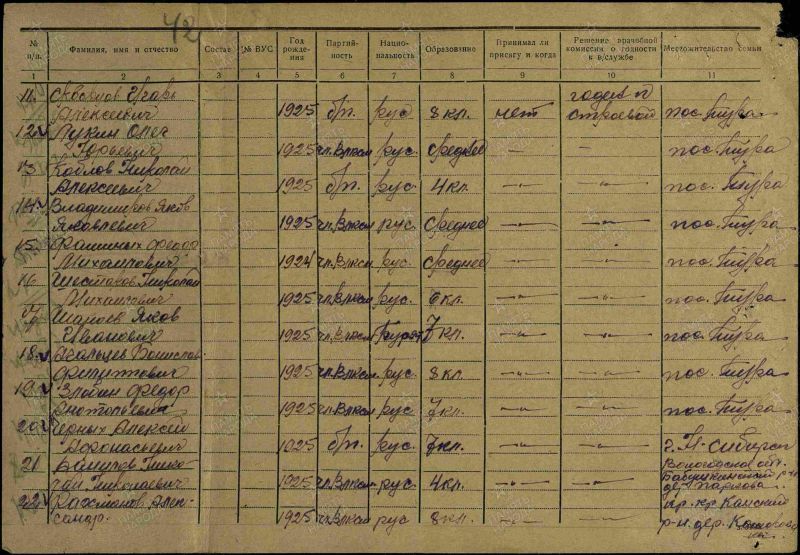 42
№ п/п. Фамилия, имя и отчество Состав № ВУС Год рождения Партийность Национальность Образование Принимал ли присягу и когда Решение врачебной комиссии о годности к в/службе Местожительство семьи
1 2 3 4 5 6 7 8 9 10 11
11. Игорь годен к
Алексеевич 1925 б/п. рус 8 кл. нет строевой пос. Тура
12 Лукин Олег
Юрьевич 1925 чл.Влксм рус. среднее —„— —„— пос. Тура
13 Николай
Алексеевич 1925 б/п. рус 4 кл. —„— —„— пос. Тура
14 Владимиров Яков
Яковлевич 1925 чл.Влксм рус. среднее —„— —„— пос. Тура
15. Федор
Михайлович 1924 чл.Влксм рус среднее —„— —„— пос. Тура
16 Шестаков Николай
Михайлович 1925 чл.Влксм рус. 6 кл. —„— —„— пос. Тура
17 Яков
Иванович 1925 чл.Влксм 7 кл. —„— —„— пос. Тура
18
Филиппович 1925 чл.Влксм рус 8 кл. —„— —„— пос. Тура
19 Злобин Федор
1925 чл.Влксм рус. 7 кл. —„— —„— пос. Тура
20 Черных Алексей
1925 б/п. рус. 7 кл. —„— —„—
21 Нико- Вологодская обл.
лай Николаевич 1925 чл.Влксм рус. 4 кл. —„— —„— дер.
22 Рахманов Алек- кр. Канский
сандр. 1925 чл.Влксм рус 8 кл. —„— —„— р-н. дер.